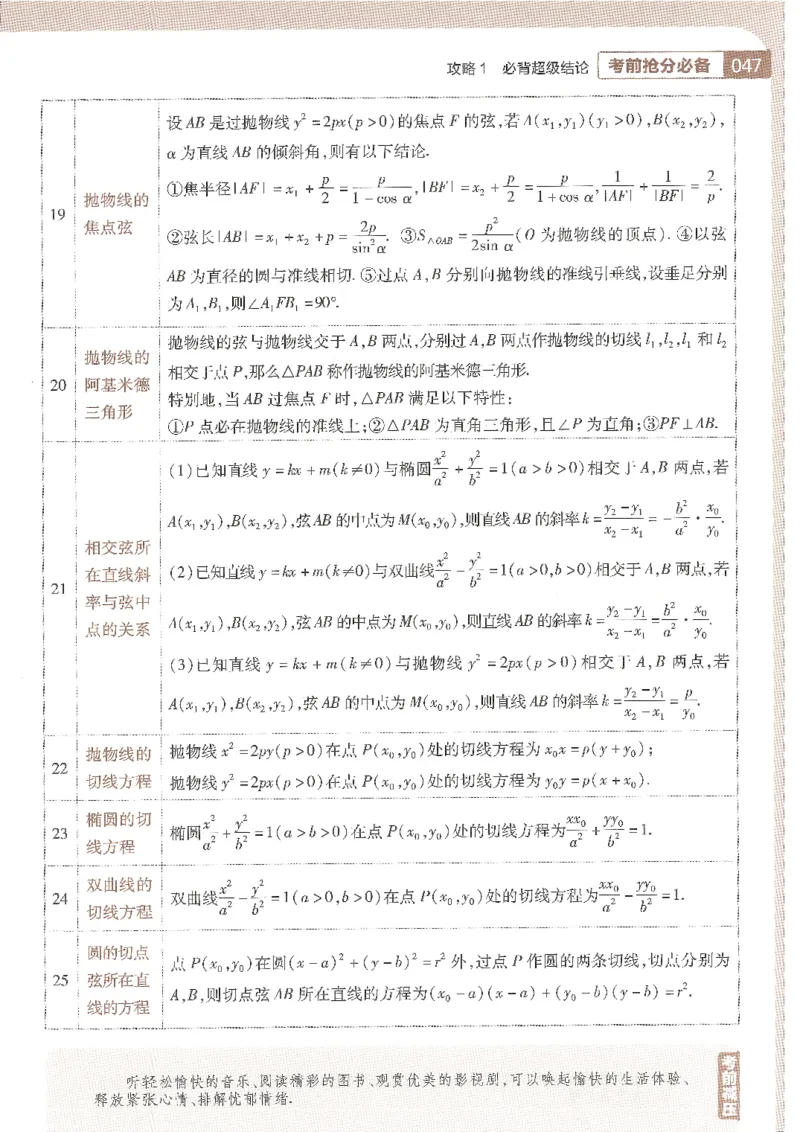 攻略1 必背超级结论 考前抢分必备 047
19
抛物线的
焦点弦
设AB是过抛物线y²=2px(p>0)的焦点F的弦,若A(x₁,y₁)(y₁>0),B(x₂,y₂),
α为直线AB的倾斜角,则有以下结论.
①焦半径|AF|=x₁+p/2=p/(1-cos α),|BF|=x₂+p/2=p/(1+cos α),1/|AF|+1/|BF|=2/p.
②弦长|AB|=x₁+x₂+p=2p/sin²α. ③S△OAB=p²/(2sin α)(O为抛物线的顶点). ④以弦
AB为直径的圆与准线相切. ⑤过点A,B分别向抛物线的准线引垂线,设垂足分别
为A₁,B₁,则∠A₁FB₁=90°.
20
抛物线的
阿基米德
三角形
抛物线的弦与抛物线交于A,B两点,分别过A,B两点作抛物线的切线l₁,l₂,l₁和l₂
相交于点P,那么△PAB称作抛物线的阿基米德三角形.
特别地,当AB过焦点F时,△PAB满足以下特性:
①P点必在抛物线的准线上;②△PAB为直角三角形,且∠P为直角;③PF⊥AB.
21
相交弦所
在直线斜
率与弦中
点的关系
(1)已知直线y=kx+m(k≠0)与椭圆x²/a²+y²/b²=1(a>b>0)相交于A,B两点,若
A(x₁,y₁),B(x₂,y₂),弦AB的中点为M(x₀,y₀),则直线AB的斜率k=(y₂-y₁)/(x₂-x₁)=-b²/a²·x₀/y₀.
(2)已知直线y=kx+m(k≠0)与双曲线x²/a²-y²/b²=1(a>0,b>0)相交于A,B两点,若
A(x₁,y₁),B(x₂,y₂),弦AB的中点为M(x₀,y₀),则直线AB的斜率k=(y₂-y₁)/(x₂-x₁)=b²/a²·x₀/y₀.
(3)已知直线y=kx+m(k≠0)与抛物线y²=2px(p>0)相交于A,B两点,若
A(x₁,y₁),B(x₂,y₂),弦AB的中点为M(x₀,y₀),则直线AB的斜率k=(y₂-y₁)/(x₂-x₁)=p/y₀.
22
抛物线的
切线方程
抛物线x²=2py(p>0)在点P(x₀,y₀)处的切线方程为x₀x=p(y+y₀);
抛物线y²=2px(p>0)在点P(x₀,y₀)处的切线方程为y₀y=p(x+x₀).
23
椭圆的切
线方程
椭圆x²/a²+y²/b²=1(a>b>0)在点P(x₀,y₀)处的切线方程为xx₀/a²+yy₀/b²=1.
24
双曲线的
切线方程
双曲线x²/a²-y²/b²=1(a>0,b>0)在点P(x₀,y₀)处的切线方程为xx₀/a²-yy₀/b²=1.
25
圆的切点
弦所在直
线的方程
点P(x₀,y₀)在圆(x-a)²+(y-b)²=r²外,过点P作圆的两条切线,切点分别为
A,B,则切点弦AB所在直线的方程为(x₀-a)(x-a)+(y₀-b)(y-b)=r².
考前减压
听轻松愉快的音乐、阅读精彩的图书、观赏优美的影视剧,可以唤起愉快的生活体验、
释放紧张心情、排解忧郁情绪.